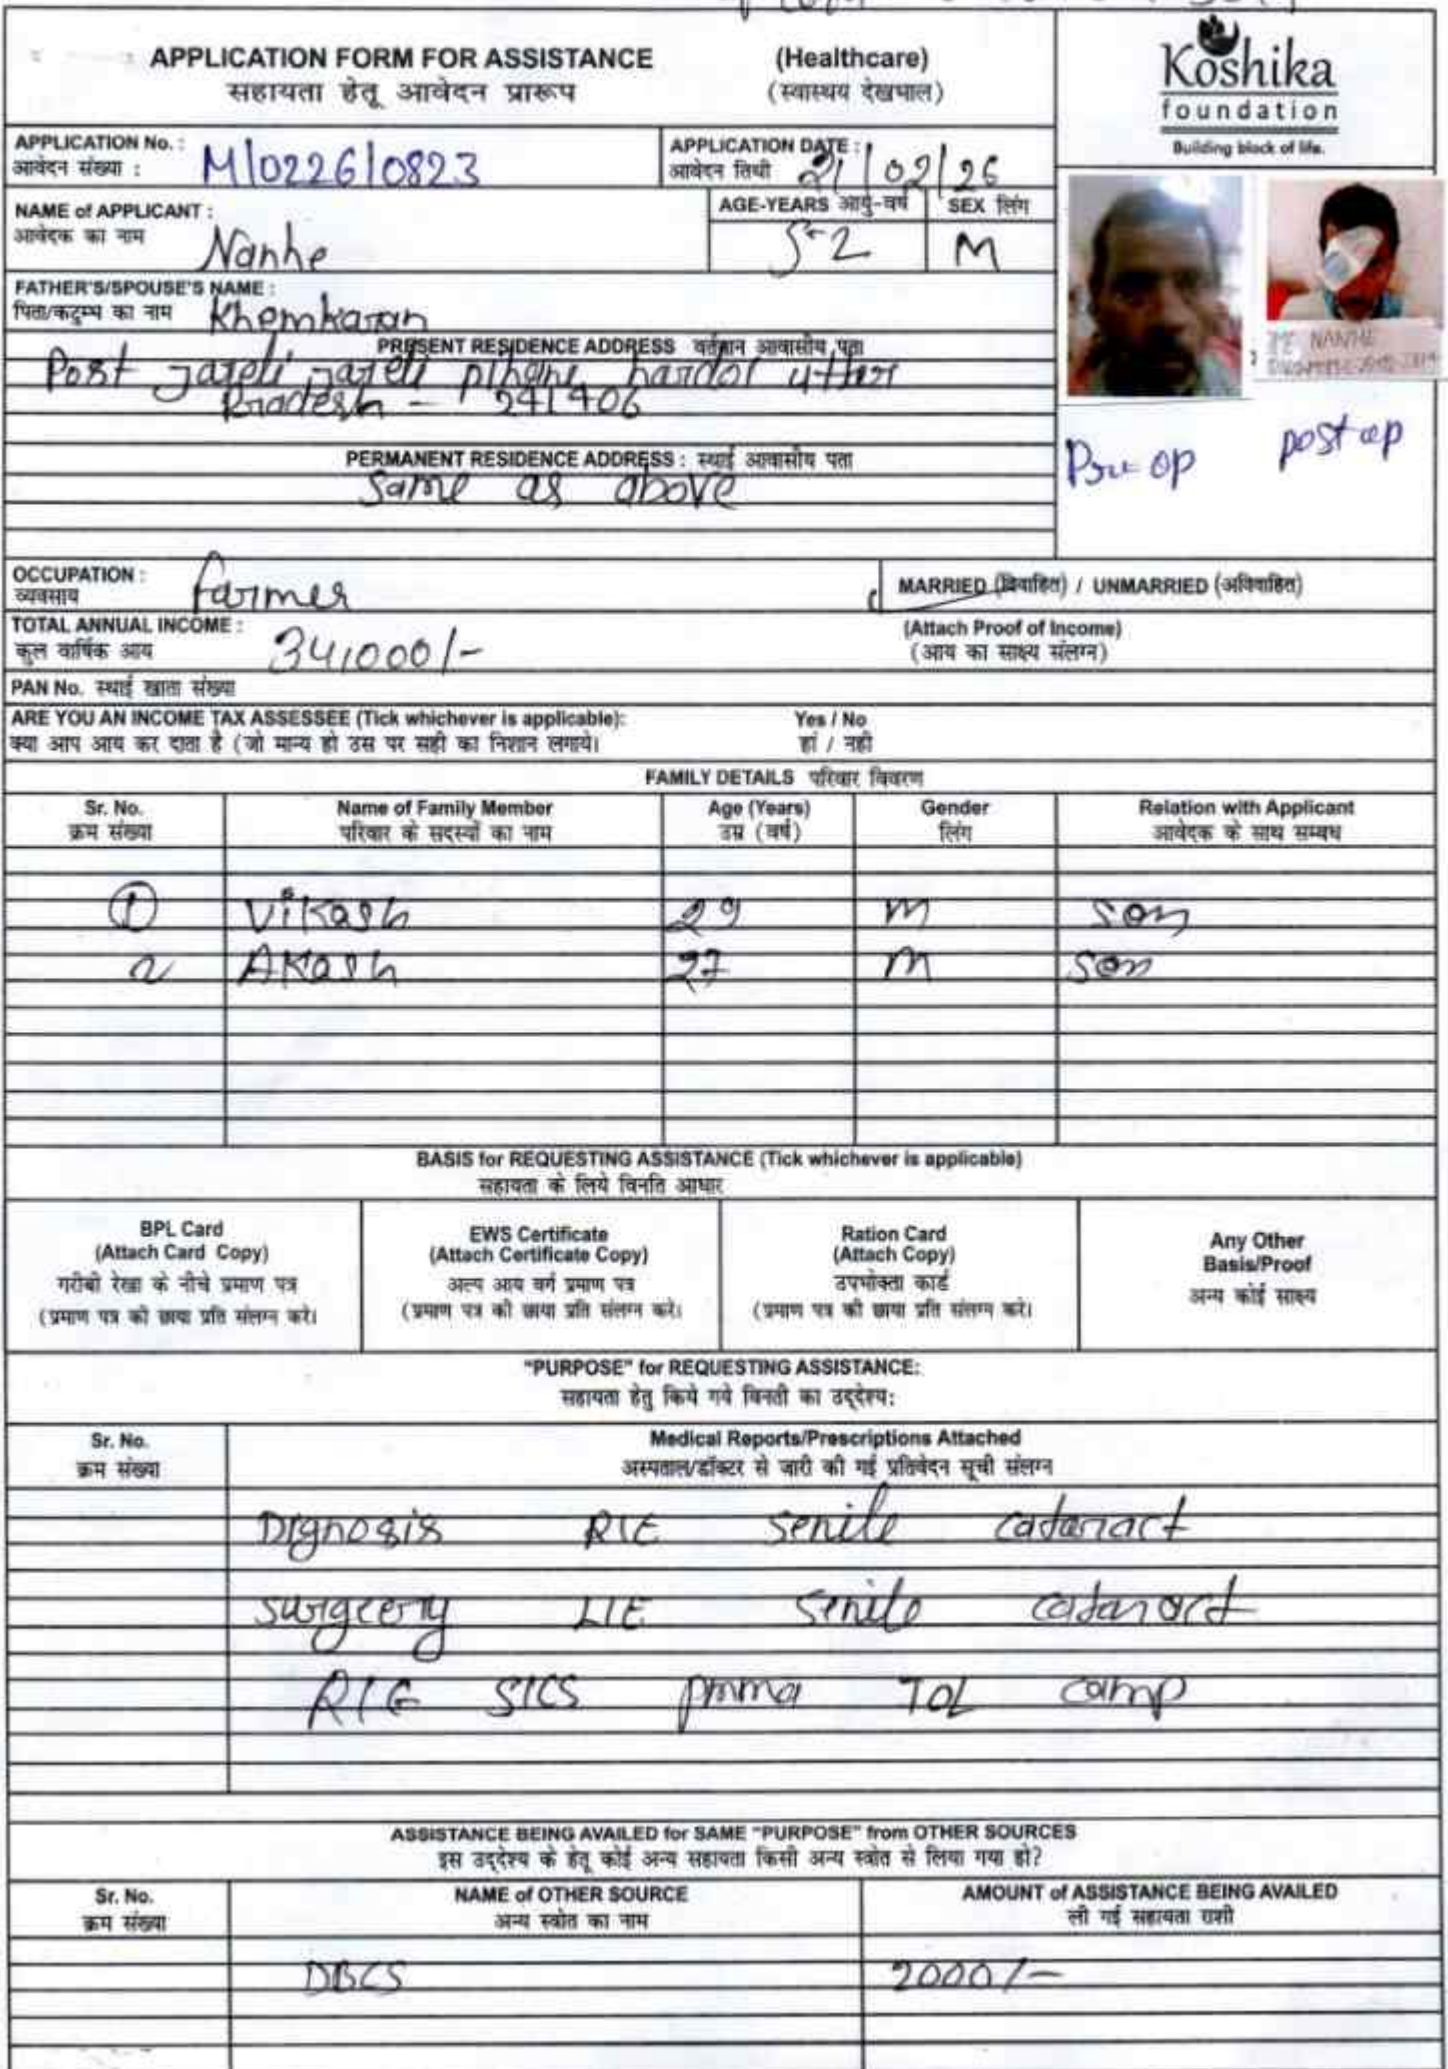 APPLICATION FORM FOR ASSISTANCE (Healthcare)
सहायता हेतू आवेदन प्रारूप (स्वास्थय देखभाल)
Koshika
foundation
Building block of life.
APPLICATION No. : M/0226/0823
आवेदन संख्या :
APPLICATION DATE : 21/02/26
आवेदन तिथी
NAME of APPLICANT : Nanhe
आवेदक का नाम
AGE-YEARS आयु-वर्ष 52
SEX लिंग M
FATHER'S/SPOUSE'S NAME : Khemkaran
पिता/कटुम्भ का नाम
PRESENT RESIDENCE ADDRESS वर्तमान आवासीय पता
Post jareli jareli pihani hardoi uttar
Pradesh - 241406
PERMANENT RESIDENCE ADDRESS : स्थाई आवासीय पता
Same as above
NANHE
Pre-op
post op
OCCUPATION : farmer
व्यवसाय
MARRIED (विवाहित) / UNMARRIED (अविवाहित)
TOTAL ANNUAL INCOME : 34,000/-
कुल वार्षिक आय
(Attach Proof of Income)
(आय का साक्ष्य संलग्न)
PAN No. स्थाई खाता संख्या
ARE YOU AN INCOME TAX ASSESSEE (Tick whichever is applicable): Yes / No
क्या आप आय कर दाता है (जो मान्य हो उस पर सही का निशान लगाये। हां / नही
FAMILY DETAILS परिवार विवरण
Sr. No. Name of Family Member Age (Years) Gender Relation with Applicant
क्रम संख्या परिवार के सदस्यों का नाम उम्र (वर्ष) लिंग आवेदक के साथ सम्बध
1 Vikash 29 m son
2 Akash 27 m son
BASIS for REQUESTING ASSISTANCE (Tick whichever is applicable)
सहायता के लिये विनति आधार
BPL Card
(Attach Card Copy)
गरीबी रेखा के नीचे प्रमाण पत्र
(प्रमाण पत्र की छाया प्रति संलग्न करे।
EWS Certificate
(Attach Certificate Copy)
अल्प आय वर्ग प्रमाण पत्र
(प्रमाण पत्र की छाया प्रति संलग्न करे।
Ration Card
(Attach Copy)
उपभोक्ता कार्ड
(प्रमाण पत्र की छाया प्रति संलग्न करे।
Any Other
Basis/Proof
अन्य कोई साक्ष्य
"PURPOSE" for REQUESTING ASSISTANCE:
सहायता हेतु किये गये विनती का उद्देश्य:
Sr. No. Medical Reports/Prescriptions Attached
क्रम संख्या अस्पताल/डॉक्टर से जारी की गई प्रतिवेदन सूची संलग्न
Dignosis R/E senile cataract
surgeery L/E senile cataract
R/E SICS pmma IOL camp
ASSISTANCE BEING AVAILED for SAME "PURPOSE" from OTHER SOURCES
इस उद्देश्य के हेतू कोई अन्य सहायता किसी अन्य स्त्रोत से लिया गया हो?
Sr. No. NAME of OTHER SOURCE AMOUNT of ASSISTANCE BEING AVAILED
क्रम संख्या अन्य स्त्रोत का नाम ली गई सहायता राशी
DBCS 2000/-